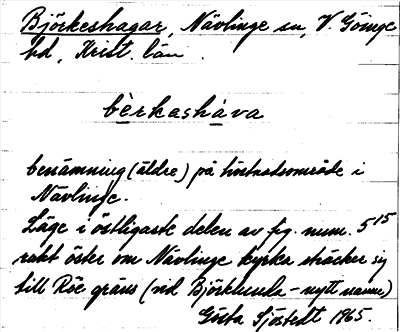 Björkeshagar, Nävlinge sn, V. Göinge
hd, Krist. län.
bèrkasháva
benämning (äldre) på tvistadsområde i
Nävlinge.
Läge i östligaste delen av fig. num. 5¹⁵
rakt öster om Nävlinge kyrka sträcker sig
till Röe gräns (vid Björklunda - nytt namn)
Gösta Sjöstedt 1965.